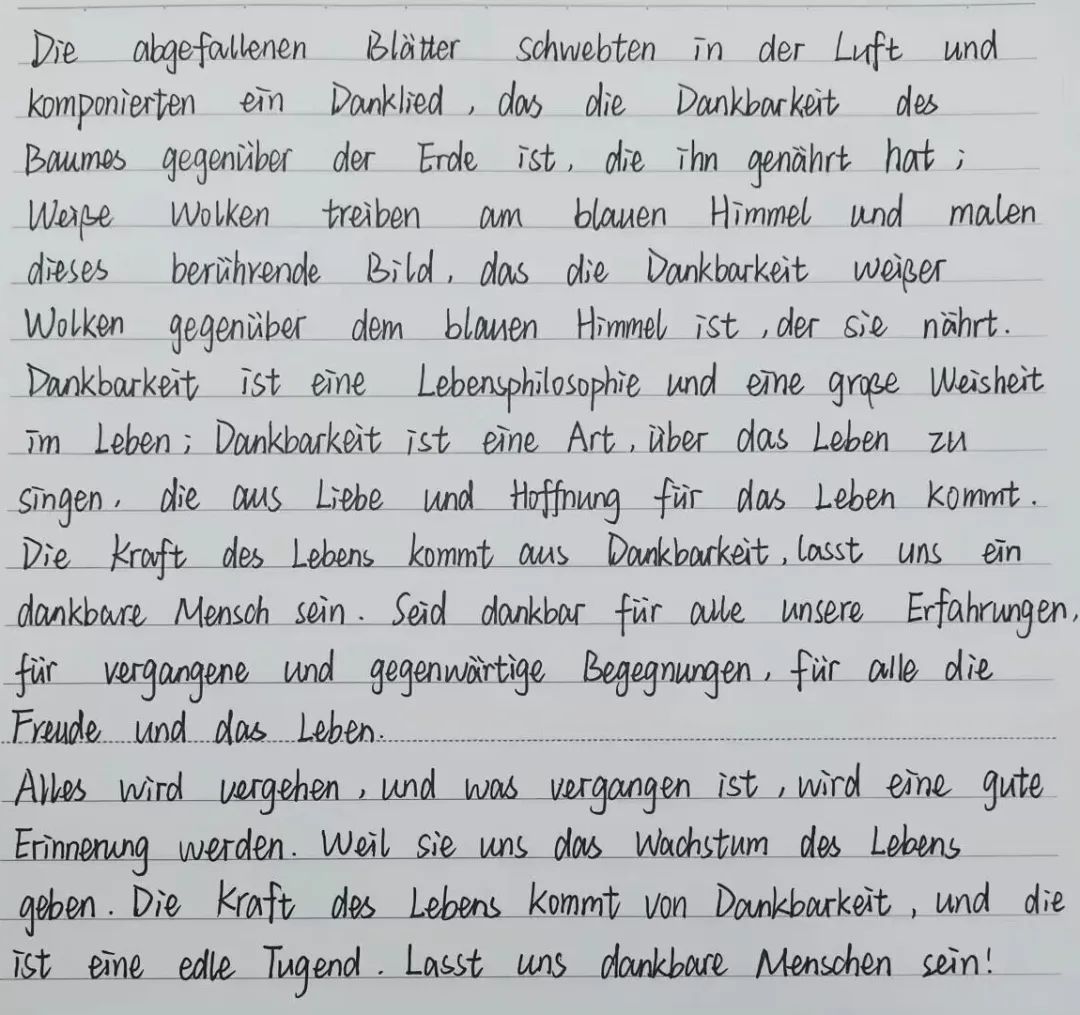 Die abgefallenen Blätter schwebten in der Luft und
komponierten ein Danklied, das die Dankbarkeit des
Baumes gegenüber der Erde ist, die ihn genährt hat;
Weiße Wolken treiben am blauen Himmel und malen
dieses berührende Bild, das die Dankbarkeit weißer
Wolken gegenüber dem blauen Himmel ist, der sie nährt.
Dankbarkeit ist eine Lebensphilosophie und eine große Weisheit
im Leben; Dankbarkeit ist eine Art, über das Leben zu
singen, die aus Liebe und Hoffnung für das Leben kommt.
Die Kraft des Lebens kommt aus Dankbarkeit, lasst uns ein
dankbare Mensch sein. Seid dankbar für alle unsere Erfahrungen,
für vergangene und gegenwärtige Begegnungen, für alle die
Freude und das Leben.
Alles wird vergehen, und was vergangen ist, wird eine gute
Erinnerung werden. Weil sie uns das Wachstum des Lebens
geben. Die Kraft des Lebens kommt von Dankbarkeit, und die
ist eine edle Tugend. Lasst uns dankbare Menschen sein!